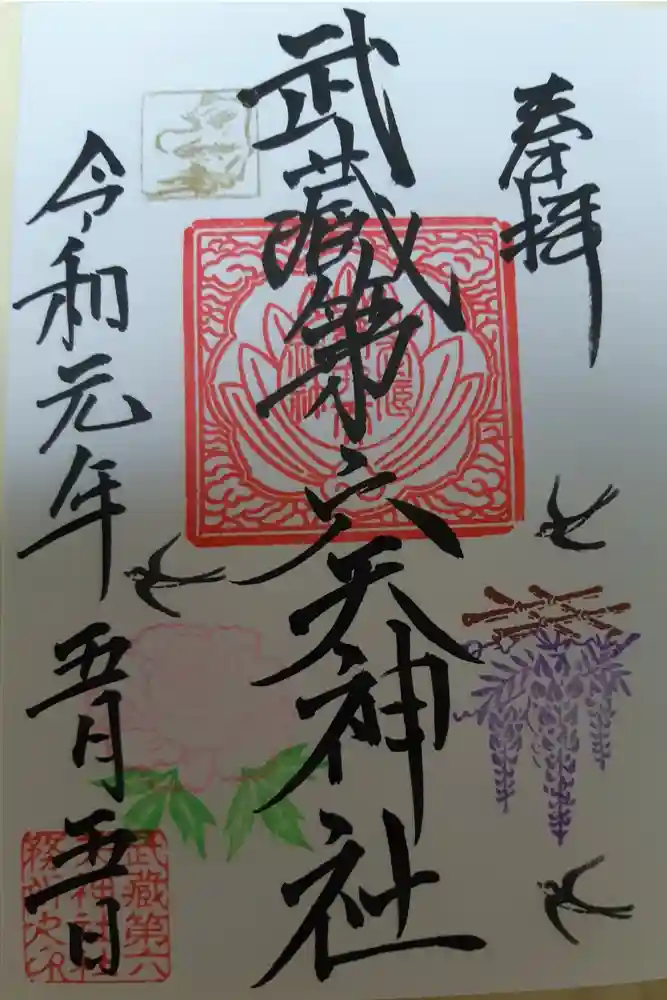 奉拝
武蔵第六天神社
令和元年五月五日
武蔵第六
天神社社
務所之印